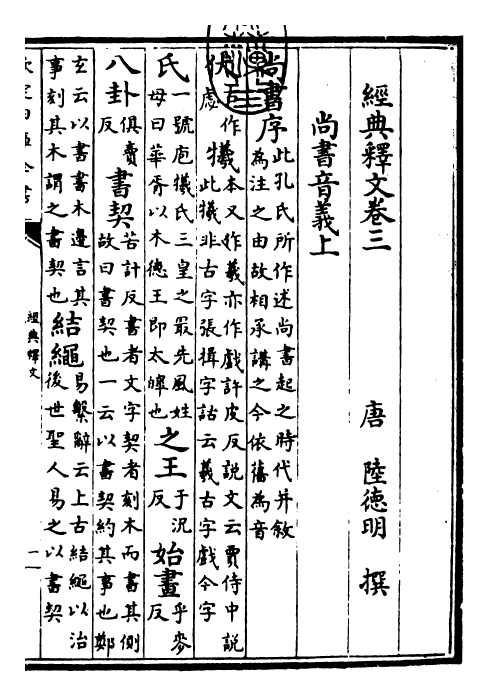 經典釋文卷三
唐 陸德明 撰
尚書音義上
尚書序 此孔氏所作述尚書起之時代并敘
為注之由故相承講之今依舊為音
伏 古作
虙
犧 本又作羲亦作戲許皮反說文云賈侍中說
此犧非古字張揖字詁云羲古字戲今字
氏 一號庖犧氏三皇之最先風姓
母曰華胥以木德王即太皥也
之王 于況
反
始畫 乎麥
反
八卦 俱賣
反
書契 苦計反書者文字契者刻木而書其側
故曰書契也一云以書契約其事也鄭
玄云以書書木邊言其
事刻其木謂之書契也
結繩 易繫辭云上古結繩以治
後世聖人易之以書契
經典釋文
一